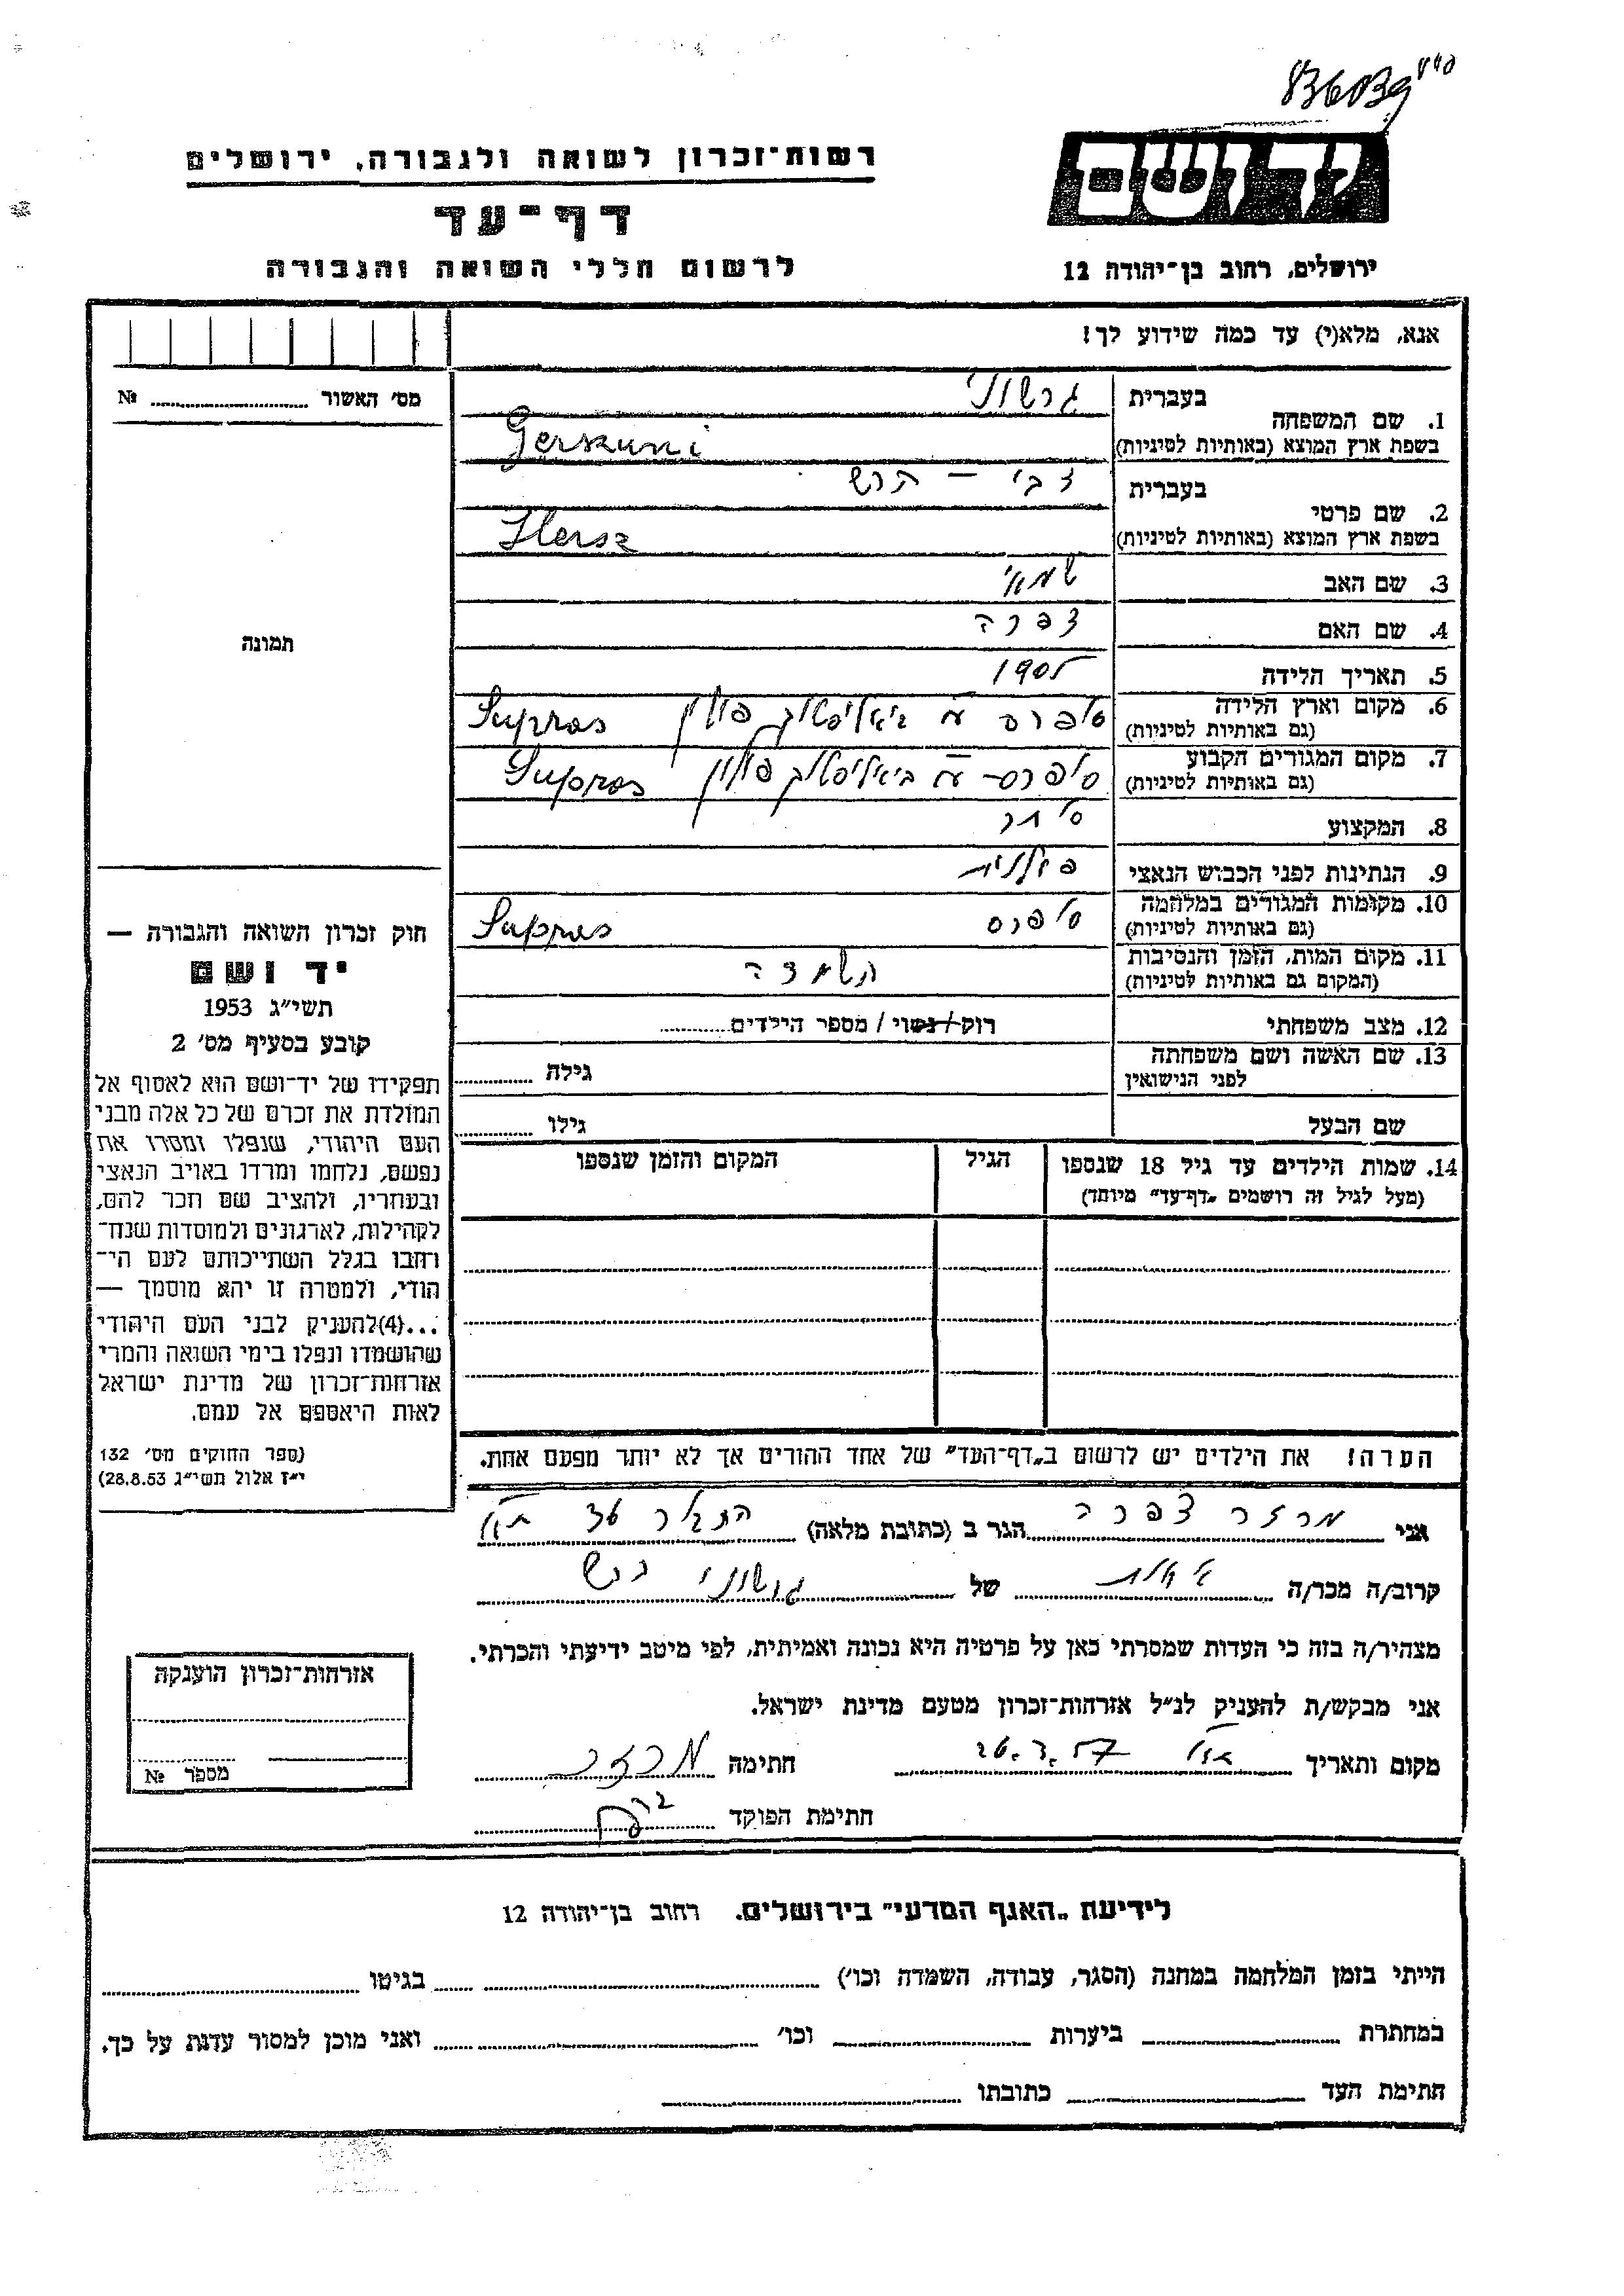 836039
יד ושם
רשות־זכרון לשואה ולגבורה, ירושלים
דף־עד
לרשום חללי השואה והגבורה
ירושלים, רחוב בן־יהודה 12
אנא, מלא(י) עד כמה שידוע לך!
מס׳ האשור № 
תמונה
1. שם המשפחה בעברית גרשוני
בשפת ארץ המוצא (באותיות לטיניות) Gerszuni
2. שם פרטי בעברית צבי — הרש
בשפת ארץ המוצא (באותיות לטיניות) Hersz
3. שם האב שמאי
4. שם האם צפרה
5. תאריך הלידה 1905
6. מקום וארץ הלידה סופרס ע״י ביאליסטוק פולין Supras
(גם באותיות לטיניות)
7. מקום המגורים הקבוע סופרס ע״י ביאליסטוק פולין Supras
(גם באותיות לטיניות)
8. המקצוע סוחר
9. הנתינות לפני הכבוש הנאצי פולנית
10. מקומות המגורים במלחמה סופרס Supras
(גם באותיות לטיניות)
11. מקום המות, הזמן והנסיבות השמדה
(המקום גם באותיות לטיניות)
12. מצב משפחתי רוק/נשוי/ מספר הילדים
13. שם האשה ושם משפחתה גילה
לפני הנישואין
שם הבעל גילו
14. שמות הילדים עד גיל 18 שנספו הגיל המקום והזמן שנספו
(מעל לגיל זה רושמים „דף־עד״ מיוחד)
הערה! את הילדים יש לרשום ב„דף־העד״ של אחד ההורים אך לא יותר מפעם אחת.
חוק זכרון השואה והגבורה —
יד ושם
תשי״ג 1953
קובע בסעיף מס׳ 2
תפקידו של יד־ושם הוא לאסוף אל
המולדת את זכרם של כל אלה מבני
העם היהודי, שנפלו ומסרו את
נפשם, נלחמו ומרדו באויב הנאצי
ובעוזריו, ולהציב שם וזכר להם,
לקהילות, לארגונים ולמוסדות שנח־
רבו בגלל השתייכותם לעם הי־
הודי, ולמטרה זו יהא מוסמך —
...(4)להעניק לבני העם היהודי
שהושמדו ונפלו בימי השואה והמרי
אזרחות־זכרון של מדינת ישראל
לאות היאספם אל עמם.
(ספר החוקים מס׳ 132
י״ז אלול תשי״ג 28.8.53)
אני צפרה הגר ב (כתובת מלאה) 36 ת״א
קרוב/ה מכר/ה של גרשוני הרש
מצהיר/ה בזה כי העדות שמסרתי כאן על פרטיה היא נכונה ואמיתית, לפי מיטב ידיעתי והכרתי.
אני מבקש/ת להעניק לנ״ל אזרחות־זכרון מטעם מדינת ישראל.
מקום ותאריך ת״א 26.3.57 חתימה
חתימת הפוקד
אזרחות־זכרון הוענקה
מספר №
לידיעת „האגף המדעי״ בירושלים. רחוב בן־יהודה 12
הייתי בזמן המלחמה במחנה (הסגר, עבודה, השמדה וכו׳) בגיטו
במחתרת ביערות וכו׳ ואני מוכן למסור עדות על כך.
חתימת העד כתובתו